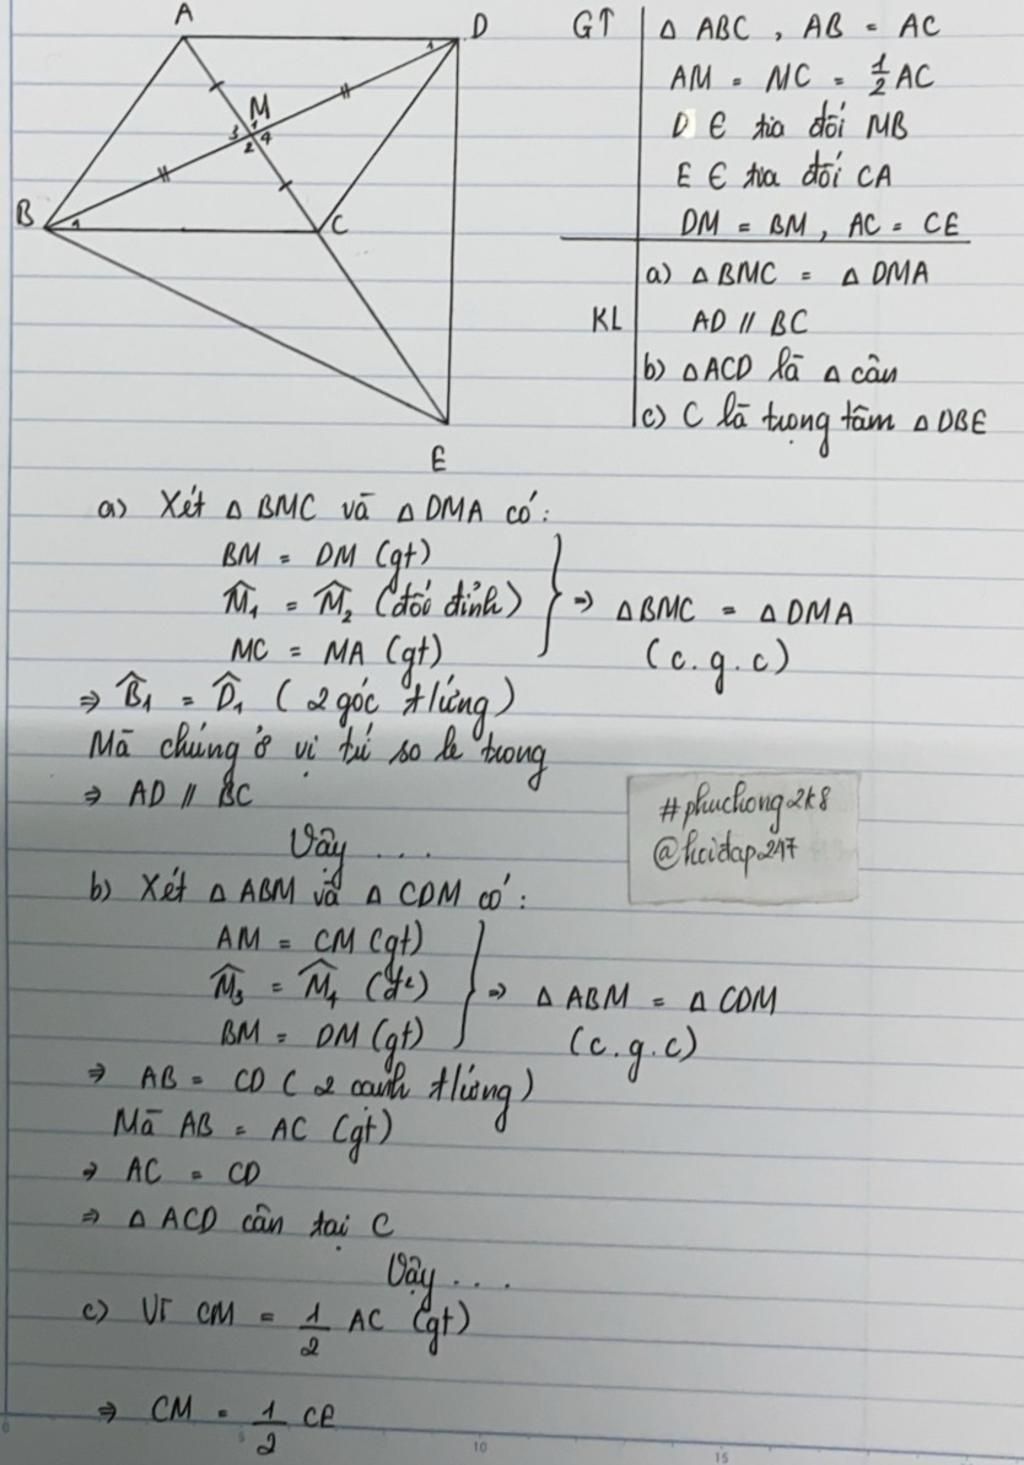 A
D
1
M
3 1 4
2
B
1
C
E
GT
Δ ABC , AB = AC
AM = MC = 1/2 AC
D ∈ tia đối MB
E ∈ tia đối CA
DM = BM , AC = CE
KL
a) Δ BMC = Δ DMA
AD // BC
b) Δ ACD là Δ cân
c) C là trọng tâm Δ DBE
a) Xét Δ BMC và Δ DMA có:
BM = DM (gt)
M̂₁ = M̂₂ (đối đỉnh)
MC = MA (gt)
⇒ Δ BMC = Δ DMA
(c.g.c)
⇒ B̂₁ = D̂₁ ( 2 góc t/ứng)
Mà chúng ở vị trí so le trong
⇒ AD // BC
Vậy ...
#phuchong2k8
@hoidap247
b) Xét Δ ABM và Δ CDM có:
AM = CM (gt)
M̂₃ = M̂₄ (đ²)
BM = DM (gt)
⇒ Δ ABM = Δ CDM
(c.g.c)
⇒ AB = CD ( 2 cạnh t/ứng)
Mà AB = AC (gt)
⇒ AC = CD
⇒ Δ ACD cân tại C
Vậy ...
c) Vì CM = 1/2 AC (gt)
⇒ CM = 1/2 CE
5
10
15